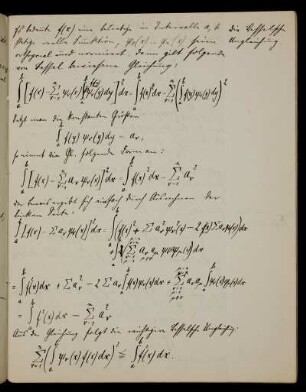 Es bedeute f(x) eine beliebige im Intervalle a, b die Besselsche
stetige reelle Funktion, φ₁(x) … φₙ(x) seien Ungleichung
orthogonal und normiert, dann gilt folgende
von Bessel herrührende Gleichung:
∫ₐᵇ [f(x) − Σ φᵣ(x) ∫ₐᵇ f(y) φᵣ(y) dy]² dx = ∫ₐᵇ f(x)² dx − Σ (∫ₐᵇ f(y) φᵣ(y) dy)²
Setzt man die konstanten Größen
∫ₐᵇ f(y) φᵣ(y) dy = aᵣ,
so nimmt die Gl. folgende Form an:
∫ₐᵇ [f(x) − Σ aᵣ φᵣ(x)]² dx = ∫ₐᵇ f(x)² dx − Σ aᵣ²
sie bewegt sich einfach durch Ausrechnen der
linken Seite,
∫ₐᵇ [f(x) − Σ aᵣ φᵣ(x)]² dx = ∫ₐᵇ (f(x)² + Σ aᵣ² φᵣ(x)² − 2 f(x) Σ aᵣ φᵣ(x)) dx
= ∫ₐᵇ f(x)² dx + Σ aᵣ² − 2 Σ aᵣ ∫ₐᵇ f(x) φᵣ(x) dx
= ∫ₐᵇ f(x)² dx − Σ aᵣ²
Aus der Gleichung folgt die wichtige Besselsche Ungleichung:
Σ (∫ₐᵇ φᵣ(x) f(x) dx)² ≦ ∫ₐᵇ f(x)² dx.